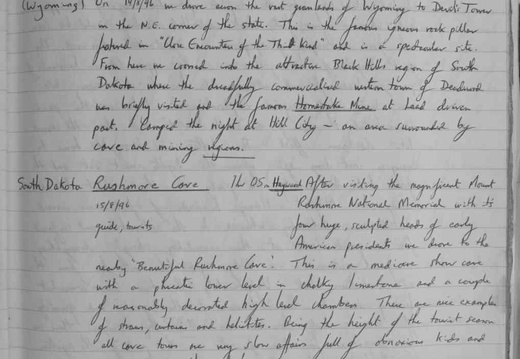 (Wyoming) On 14/8/96 we drove across the vast grasslands of Wyoming to Devils Tower
in the N.E. corner of the state. This is the famous igneous rock pillar
featured in "Close Encounters of the Third Kind" and is a spectacular site.
From here we crossed into the attractive Black Hills region of South
Dakota where the dreadfully commercialised western town of Deadwood
was briefly visited and the famous Homestake Mine at Lead driven
past. Camped the night at Hill City - an area surrounded by
cave and mining regions.
South Dakota Rushmore Cave After visiting the magnificent Mount
15/8/96 Rushmore National Memorial with its
guide, tourists four huge, sculpted heads of early
American presidents we drove to the
nearby 'Beautiful Rushmore Cave'. This is a mediocre show cave
with a phreatic lower level in chalky limestone and a couple
of reasonably decorated high level chambers. There are nice examples
of straws, curtains and helictites. Being the height of the tourist season
all cave tours are very slow affairs full of obnoxious kids and